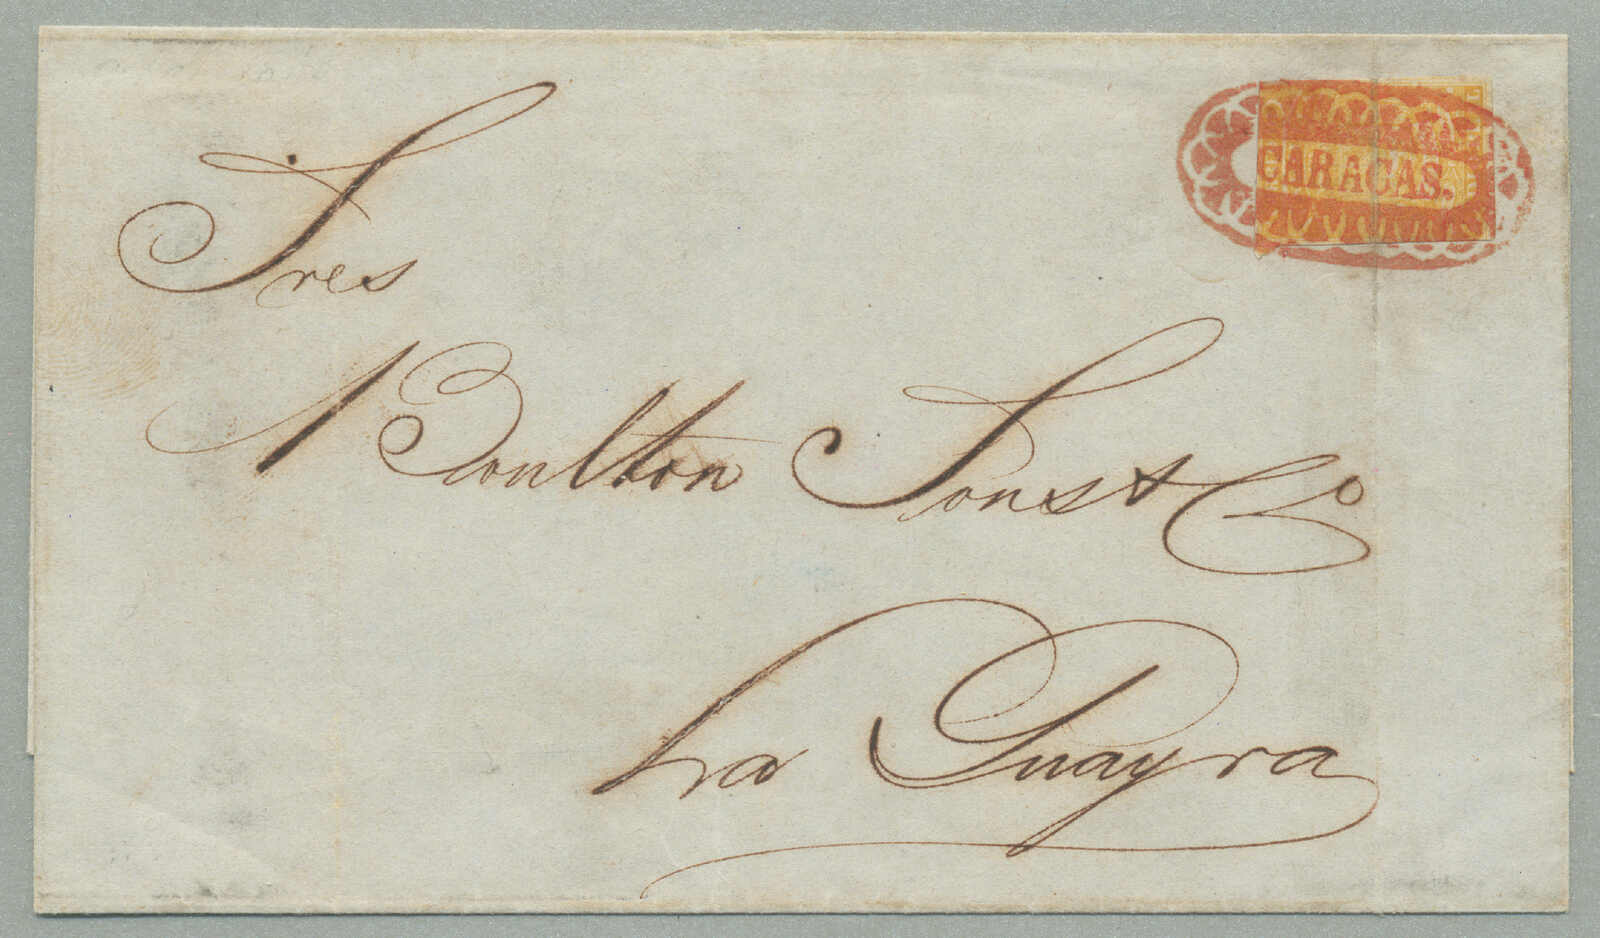 CARACAS.
Sres
Boulton Sons & Co
La Guayra